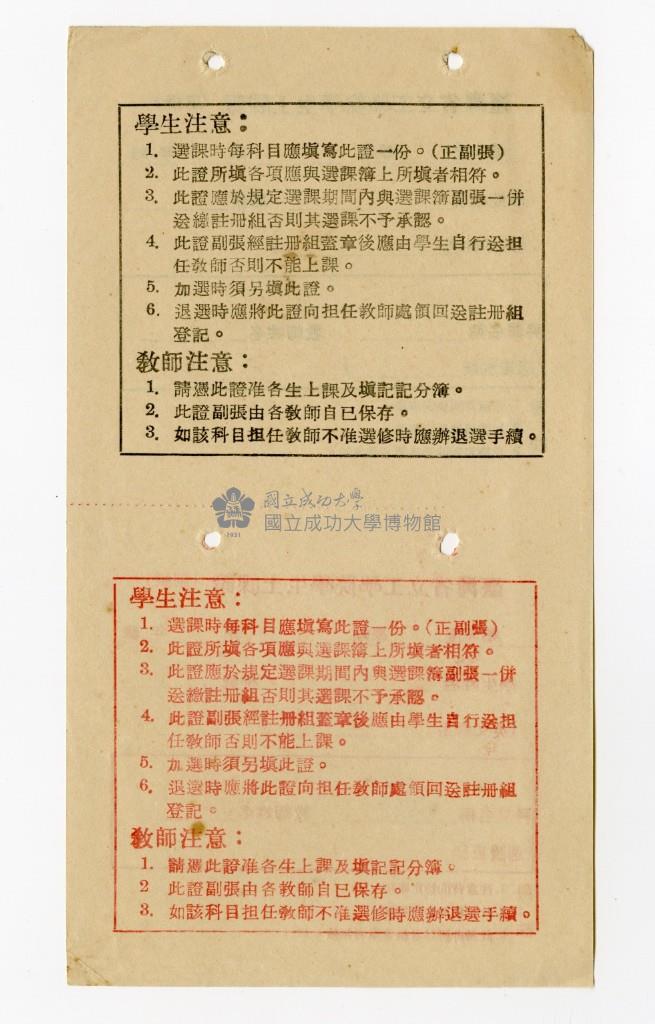 學生注意：
1. 選課時每科目應塡寫此證一份。(正副張)
2. 此證所塡各項應與選課簿上所塡者相符。
3. 此證應於規定選課期間內與選課簿副張一併
送繳註册組否則其選課不予承認。
4. 此證副張經註册組蓋章後應由學生自行送担
任敎師否則不能上課。
5. 加選時須另塡此證。
6. 退選時應將此證向担任敎師處領回送註册組
登記。
敎師注意：
1. 請憑此證准各生上課及塡記記分簿。
2. 此證副張由各敎師自已保存。
3. 如該科目担任敎師不准選修時應辦退選手續。
國立成功大學
國立成功大學博物館
1931
學生注意：
1. 選課時每科目應塡寫此證一份。(正副張)
2. 此證所塡各項應與選課簿上所塡者相符。
3. 此證應於規定選課期間內與選課簿副張一併
送繳註册組否則其選課不予承認。
4. 此證副張經註册組蓋章後應由學生自行送担
任敎師否則不能上課。
5. 加選時須另塡此證。
6. 退選時應將此證向担任敎師處領回送註册組
登記。
敎師注意：
1. 請憑此證准各生上課及塡記記分簿。
2 此證副張由各敎師自已保存。
3. 如該科目担任敎師不准選修時應辦退選手續。